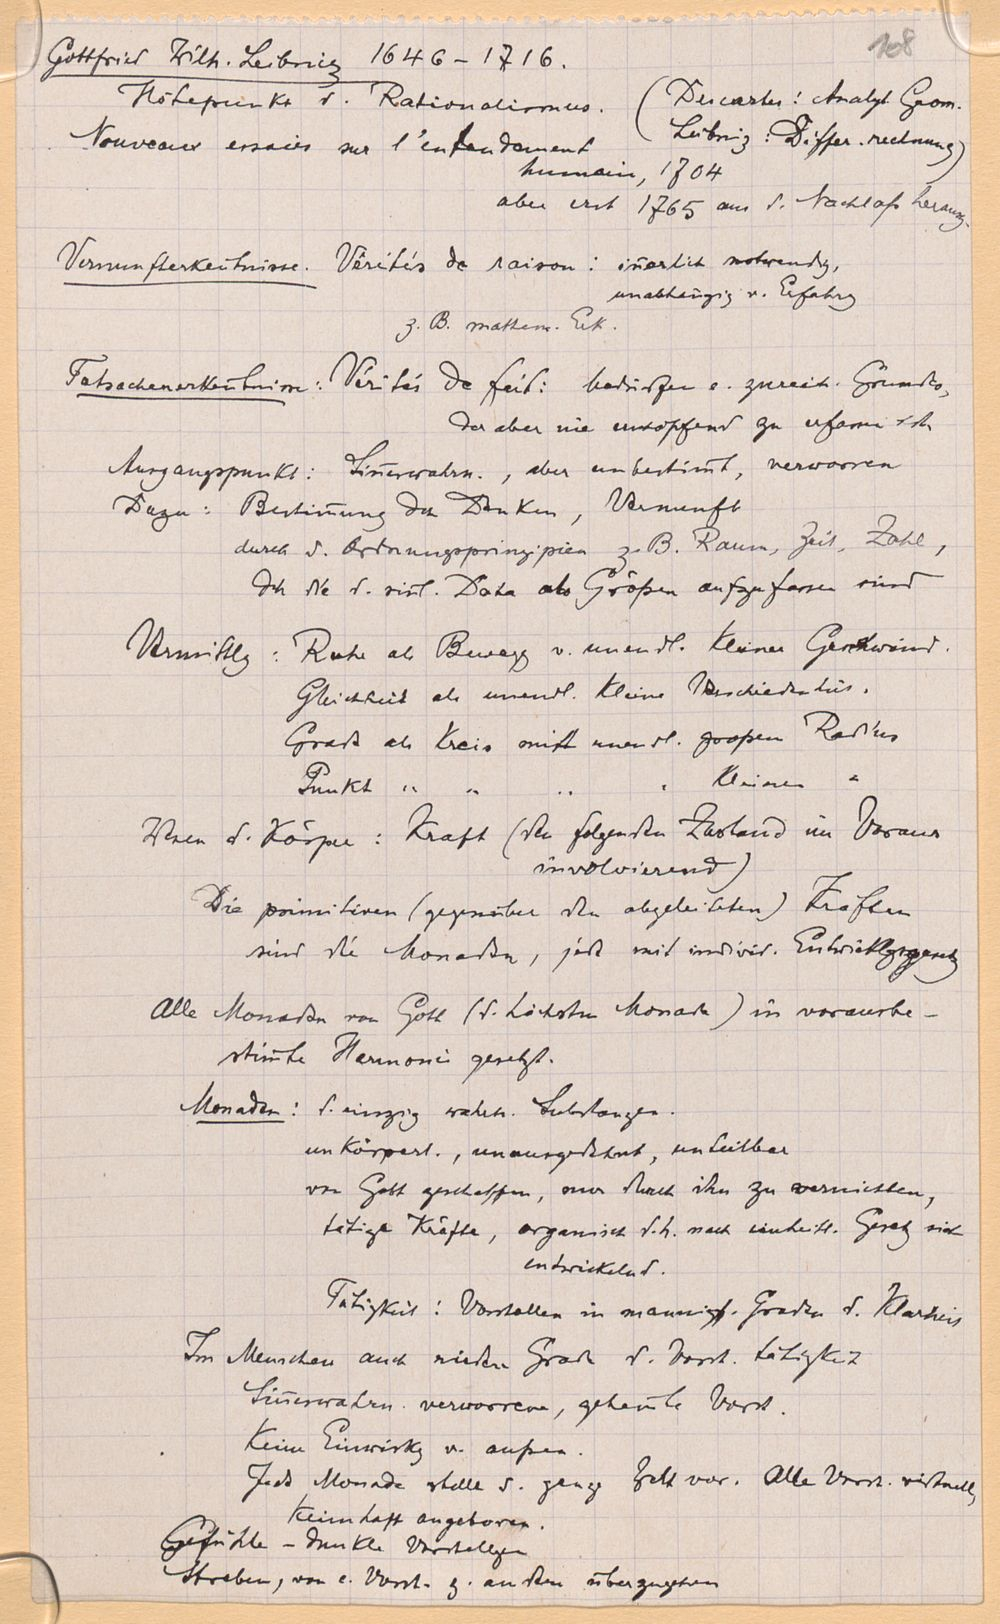 108
Gottfried Wilh. Leibniz 1646 – 1716.
Höhepunkt d. Rationalismus. (Descartes: Analyt Geom.
Leibniz: Differ.rechnung)
Nouveaux essais sur l'entendement
humain, 1704
aber erst 1765 aus d. Nachlaß herausg.
Vernunfterkentnisse. Vérités de raison: inerlich notwendig,
unabhängig v. Erfahrg
z. B. mathem. Erk.
Tatsachenerkentnisse: Vérités de fait: bedürfen e. zureich. Grundes,
der aber nie erschöpfend zu erfassen ist
Ausgangspunkt: Sineswahrn., aber unbestimt, verworren
Dazu: Bestimung dch Denken, Vernunft
durch d. Ordnungsprinzipien z. B. Raum, Zeit, Zahl,
dch die d. sinl. Data als Größen aufzufassen sind
Vermittlg: Ruhe als Bewegg v. unendl. kleiner Geschwind.
Gleichheit als unendl. kleine Verschiedenheit.
Grade als Kreis mit unendl. großem Radius
Punkt " " " " kleinem "
Wesen d. Körper: Kraft (den folgenden Zustand im Voraus
involvierend)
Die primitiven (gegenüber den abgeleiteten) Kräften
sind die Monaden, jede mit individ. Entwicklgsgesetz
Alle Monaden von Gott (d. höchsten Monade) in vorausbe-
stimte Harmonie gesetzt.
Monaden: d. einzig wahren Substanzen.
unkörperl., unausgedehnt, unteilbar
von Gott geschaffen, nur durch ihn zu vernichten,
tätige Kräfte, organisch d.h. nach einheitl. Gesetz sich
entwickelnd.
Tätigkeit: Vorstellen in mannigf. Graden d. Klarheit
Im Menschen auch niedere Grade d. Vorst. tätigkeit
Sineswahrn. verworrene, gehemte Vorst.
Keine Einwirkg v. außen.
Jede Monade stelle d. ganze Welt vor. Alle Vorst. virtuell,
keimhaft angeboren.
Gefühle – dunkle Vorstellgen
Streben, von e. Vorst. z. anderen überzugehen